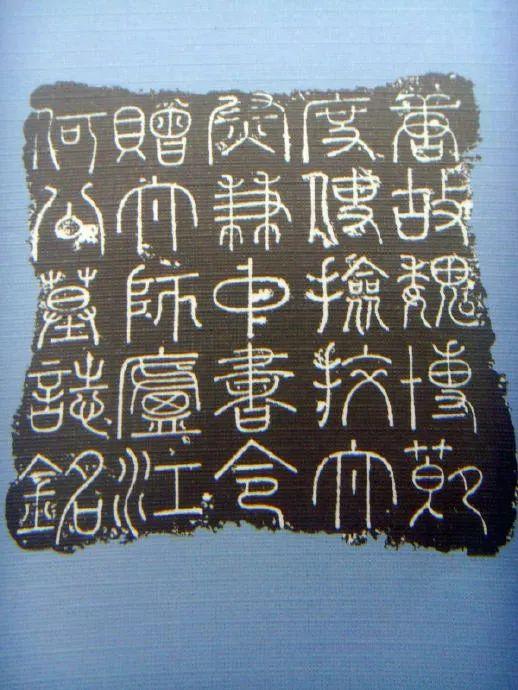 唐故魏博節
度使檢挍大
尉兼中書令
贈大師廬江
何公墓誌銘